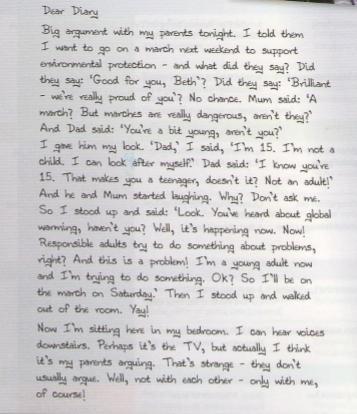 Dear Diary
Big argument with my parents tonight. I told them
I want to go on a march next weekend to support
environmental protection - and what did they say? Did
they say: 'Good for you, Beth'? Did they say: 'Brilliant
- we're really proud of you'? No chance. Mum said: 'A
march? But marches are really dangerous, aren't they?'
And Dad said: 'You're a bit young, aren't you?'
I gave him my look. 'Dad,' I said, 'I'm 15. I'm not a
child. I can look after myself.' Dad said: 'I know you're
15. That makes you a teenager, doesn't it? Not an adult!'
And he and Mum started laughing. Why? Don't ask me.
So I stood up and said: 'Look. You've heard about global
warming, haven't you? Well, it's happening now. Now!
Responsible adults try to do something about problems,
right? And this is a problem! I'm a young adult now
and I'm trying to do something. OK? So I'll be on
the march on Saturday.' Then I stood up and walked
out of the room. Yay!
Now I'm sitting here in my bedroom. I can hear voices
downstairs. Perhaps it's the TV, but actually I think
it's my parents arguing. That's strange - they don't
usually argue. Well, not with each other - only with me,
of course!